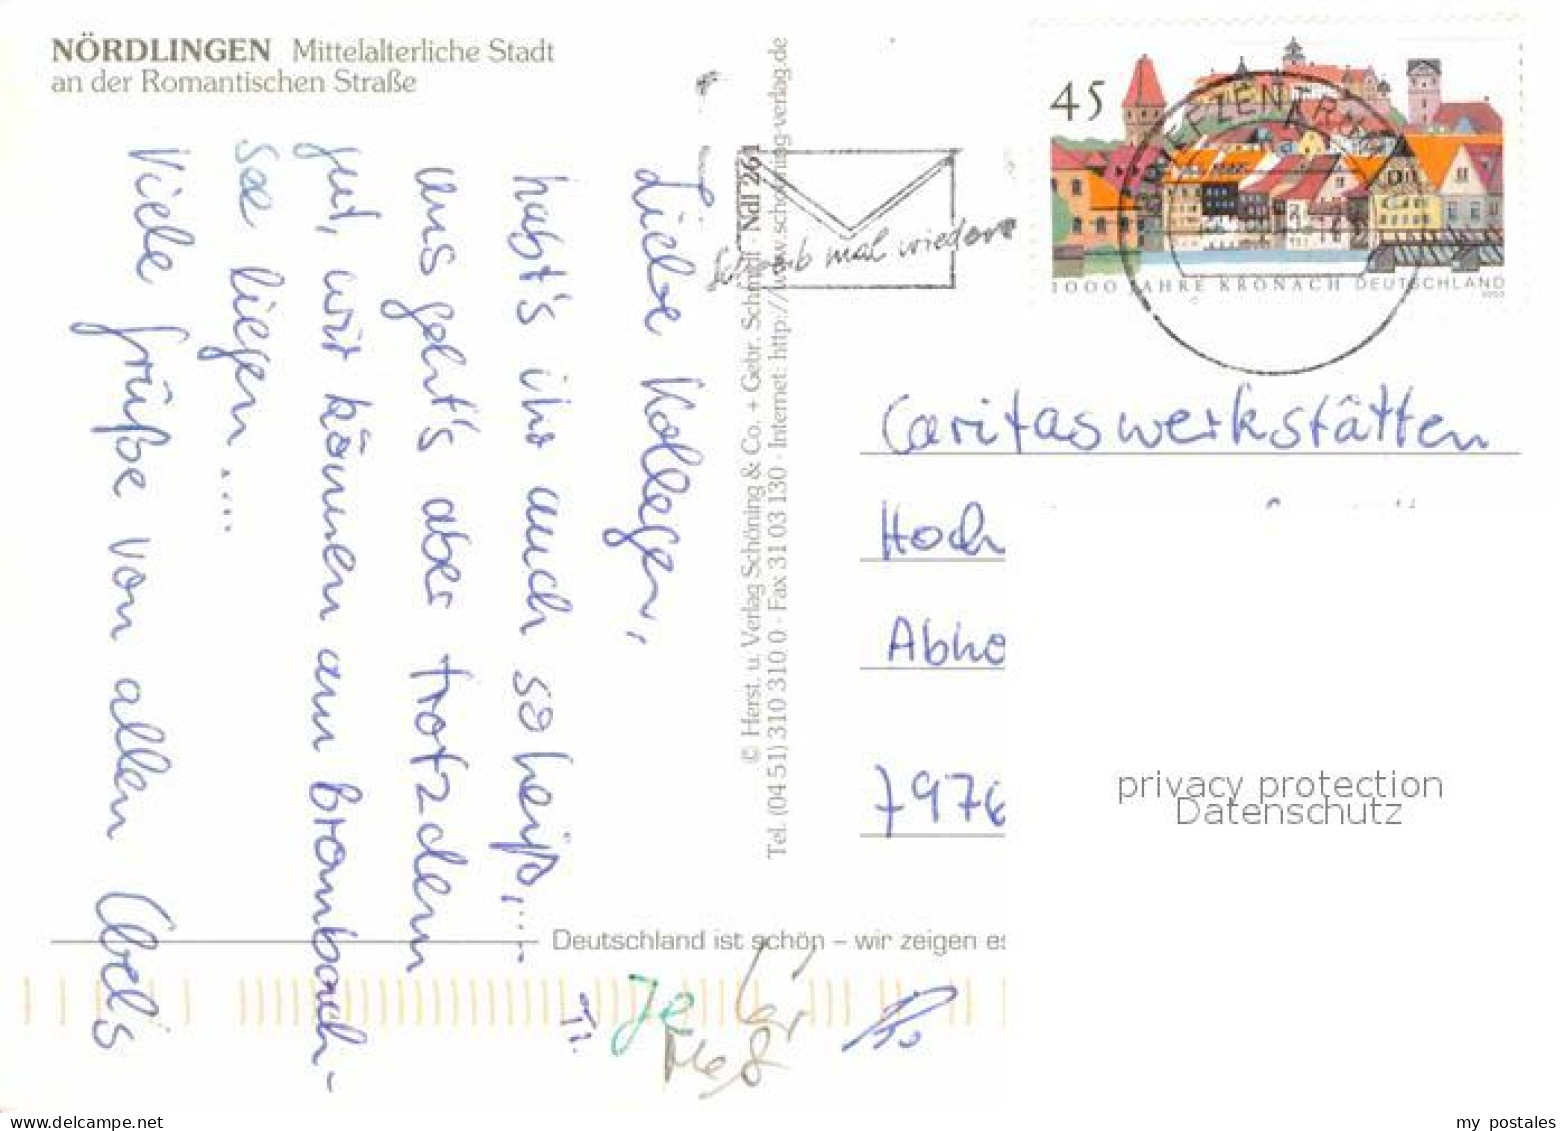 NÖRDLINGEN Mittelalterliche Stadt
an der Romantischen Straße
Liebe Kollegen,
habt's ihr auch so heiß,....
uns geht's aber trotzdem
gut, wir können am Brombach-
see liegen.....
Viele Grüße von allen
© Herst. u. Verlag Schöning & Co. + Gebr. Schmidt · Ndl 261
Tel. (04 51) 310 310 0 · Fax 31 03 130 · Internet: http://www.schoening-verlag.de
Deutschland ist schön – wir zeigen es
Schreib mal wieder
BRIEFZENTRUM
45
1000 JAHRE KRONACH DEUTSCHLAND
Caritaswerkstätten
Hoch
Abho
7976
privacy protection
Datenschutz
my postales